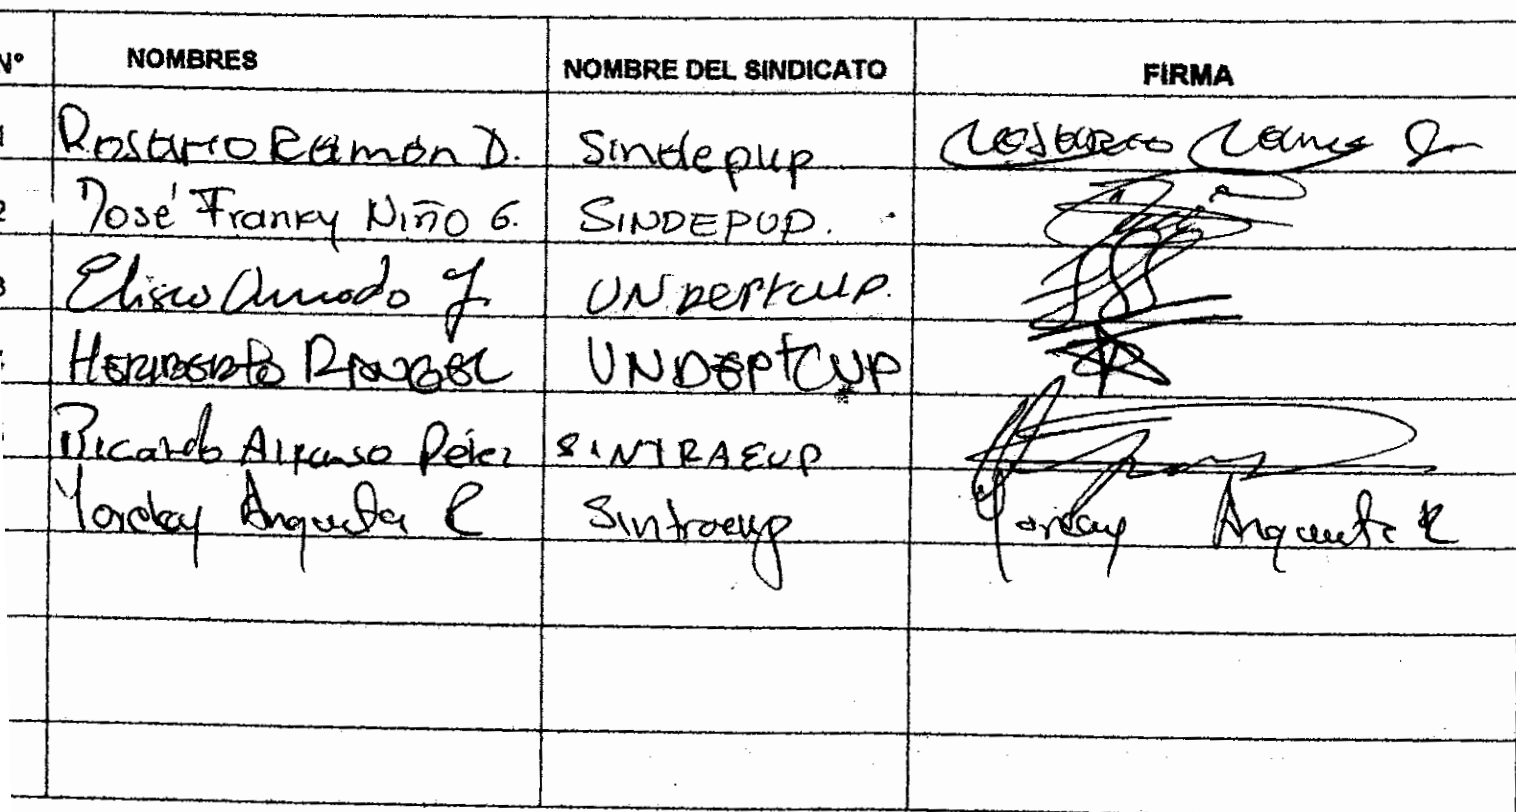 Nº NOMBRES NOMBRE DEL SINDICATO FIRMA
1 Rosario Ramón D. Sindepup Rosario Ramón D
2 José Franky Niño G. SINDEPUP.
3 Eliseo Amado J. UNDEPTCUP.
HERIBERTO RANGEL UNDEPTCUP
Ricardo Alfonso Pérez SINTRAEUP
Yorday Angarita R Sintraeup Yorday Angarita R